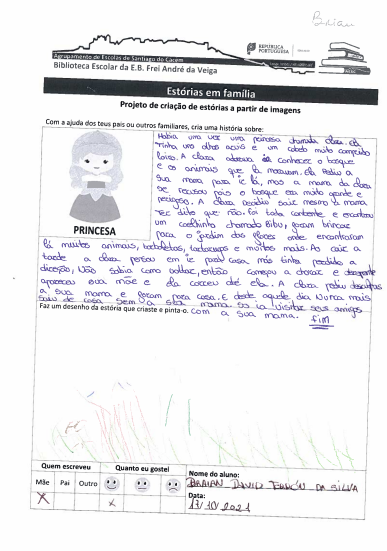 Brian
REPÚBLICA PORTUGUESA
Agrupamento de Escolas de Santiago do Cacém
Biblioteca Escolar da E.B. Frei André da Veiga
Estórias em família
Projeto de criação de estórias a partir de imagens
Com a ajuda dos teus pais ou outros familiares, cria uma história sobre:
Havia uma vez uma princesa chamada clara. Ela
tinha uns olhos azuis e um cabelo muito comprido
loiro. A clara adorava conhecer o bosque
e os animais que lá moravam. Ela pediu a
sua mama para ir lá, mas a mama da clara
se recusou pois o bosque era muito grande e
perigoso. A clara decidiu sair mesmo a mama
ter dito que não. Foi toda contente e encontrou
um coelhinho chamado Bibu, foram brincar
para o jardim das flores onde encontraram
PRINCESA
lá muitos animais, borboletas, tartarugas e muitos mais. Ao cair a
tarde a clara pensou em ir para casa mas tinha perdido a
direção, Não sabia como voltar, então começou a chorar e de repente
apareceu sua mãe e da correu até ela. A clara pediu desculpas
a sua mama e foram para casa. E desde aquele dia Nunca mais
saiu de casa sem a sua mama. só ia visitar seus amigos
Faz um desenho da estória que criaste e pinta-o.
com a sua mama. FIM
Quem escreveu
Quanto eu gostei
Mãe Pai Outro
X
x
Nome do aluno:
BRAIAN DAVID DA SILVA
Data:
17/10/2021